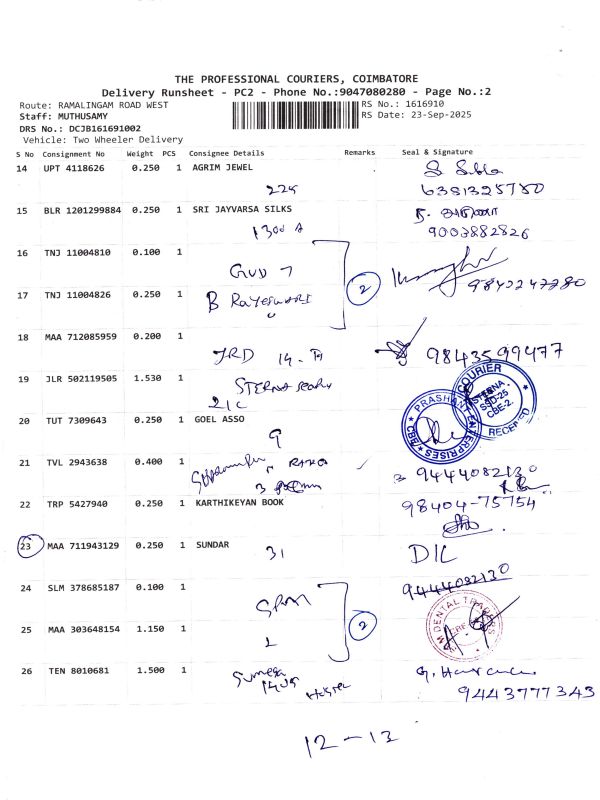 THE PROFESSIONAL COURIERS, COIMBATORE
Delivery Runsheet - PC2 - Phone No.:9047080280 - Page No.:2
Route: RAMALINGAM ROAD WEST RS No.: 1616910
Staff: MUTHUSAMY RS Date: 23-Sep-2025
DRS No.: DCJB161691002
Vehicle: Two Wheeler Delivery
S No Consignment No Weight PCS Consignee Details Remarks Seal & Signature
14 UPT 4118626 0.250 1 AGRIM JEWEL
225 6381325750
15 BLR 1201299884 0.250 1 SRI JAYVARSA SILKS
1300 A 9003882826
16 TNJ 11004810 0.100 1
2
17 TNJ 11004826 0.250 1 B
18 MAA 712085959 0.200 1
JRD 14 9843599477
19 JLR 502119505 1.530 1 STERNA
21C
COURIER STERNA SSD-25 CBE-2. RECEIVED
20 TUT 7309643 0.250 1 GOEL ASSO
9 PRASHANT ENTERPRISES CBE
21 TVL 2943638 0.400 1
9444082130
22 TRP 5427940 0.250 1 KARTHIKEYAN BOOK 98404-75754
23 MAA 711943129 0.250 1 SUNDAR
31 DIL
9444082130
24 SLM 378685187 0.100 1
SRM 2
25 MAA 303648154 1.150 1 DENTAL TRADERS
26 TEN 8010681 1.500 1
9443777343
12-13